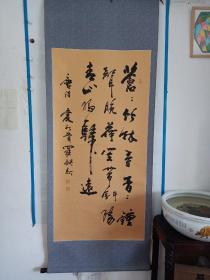 蒼々竹林寺杳々鐘
聲晚荷笠帶斜陽
青山獨歸遠
唐詩